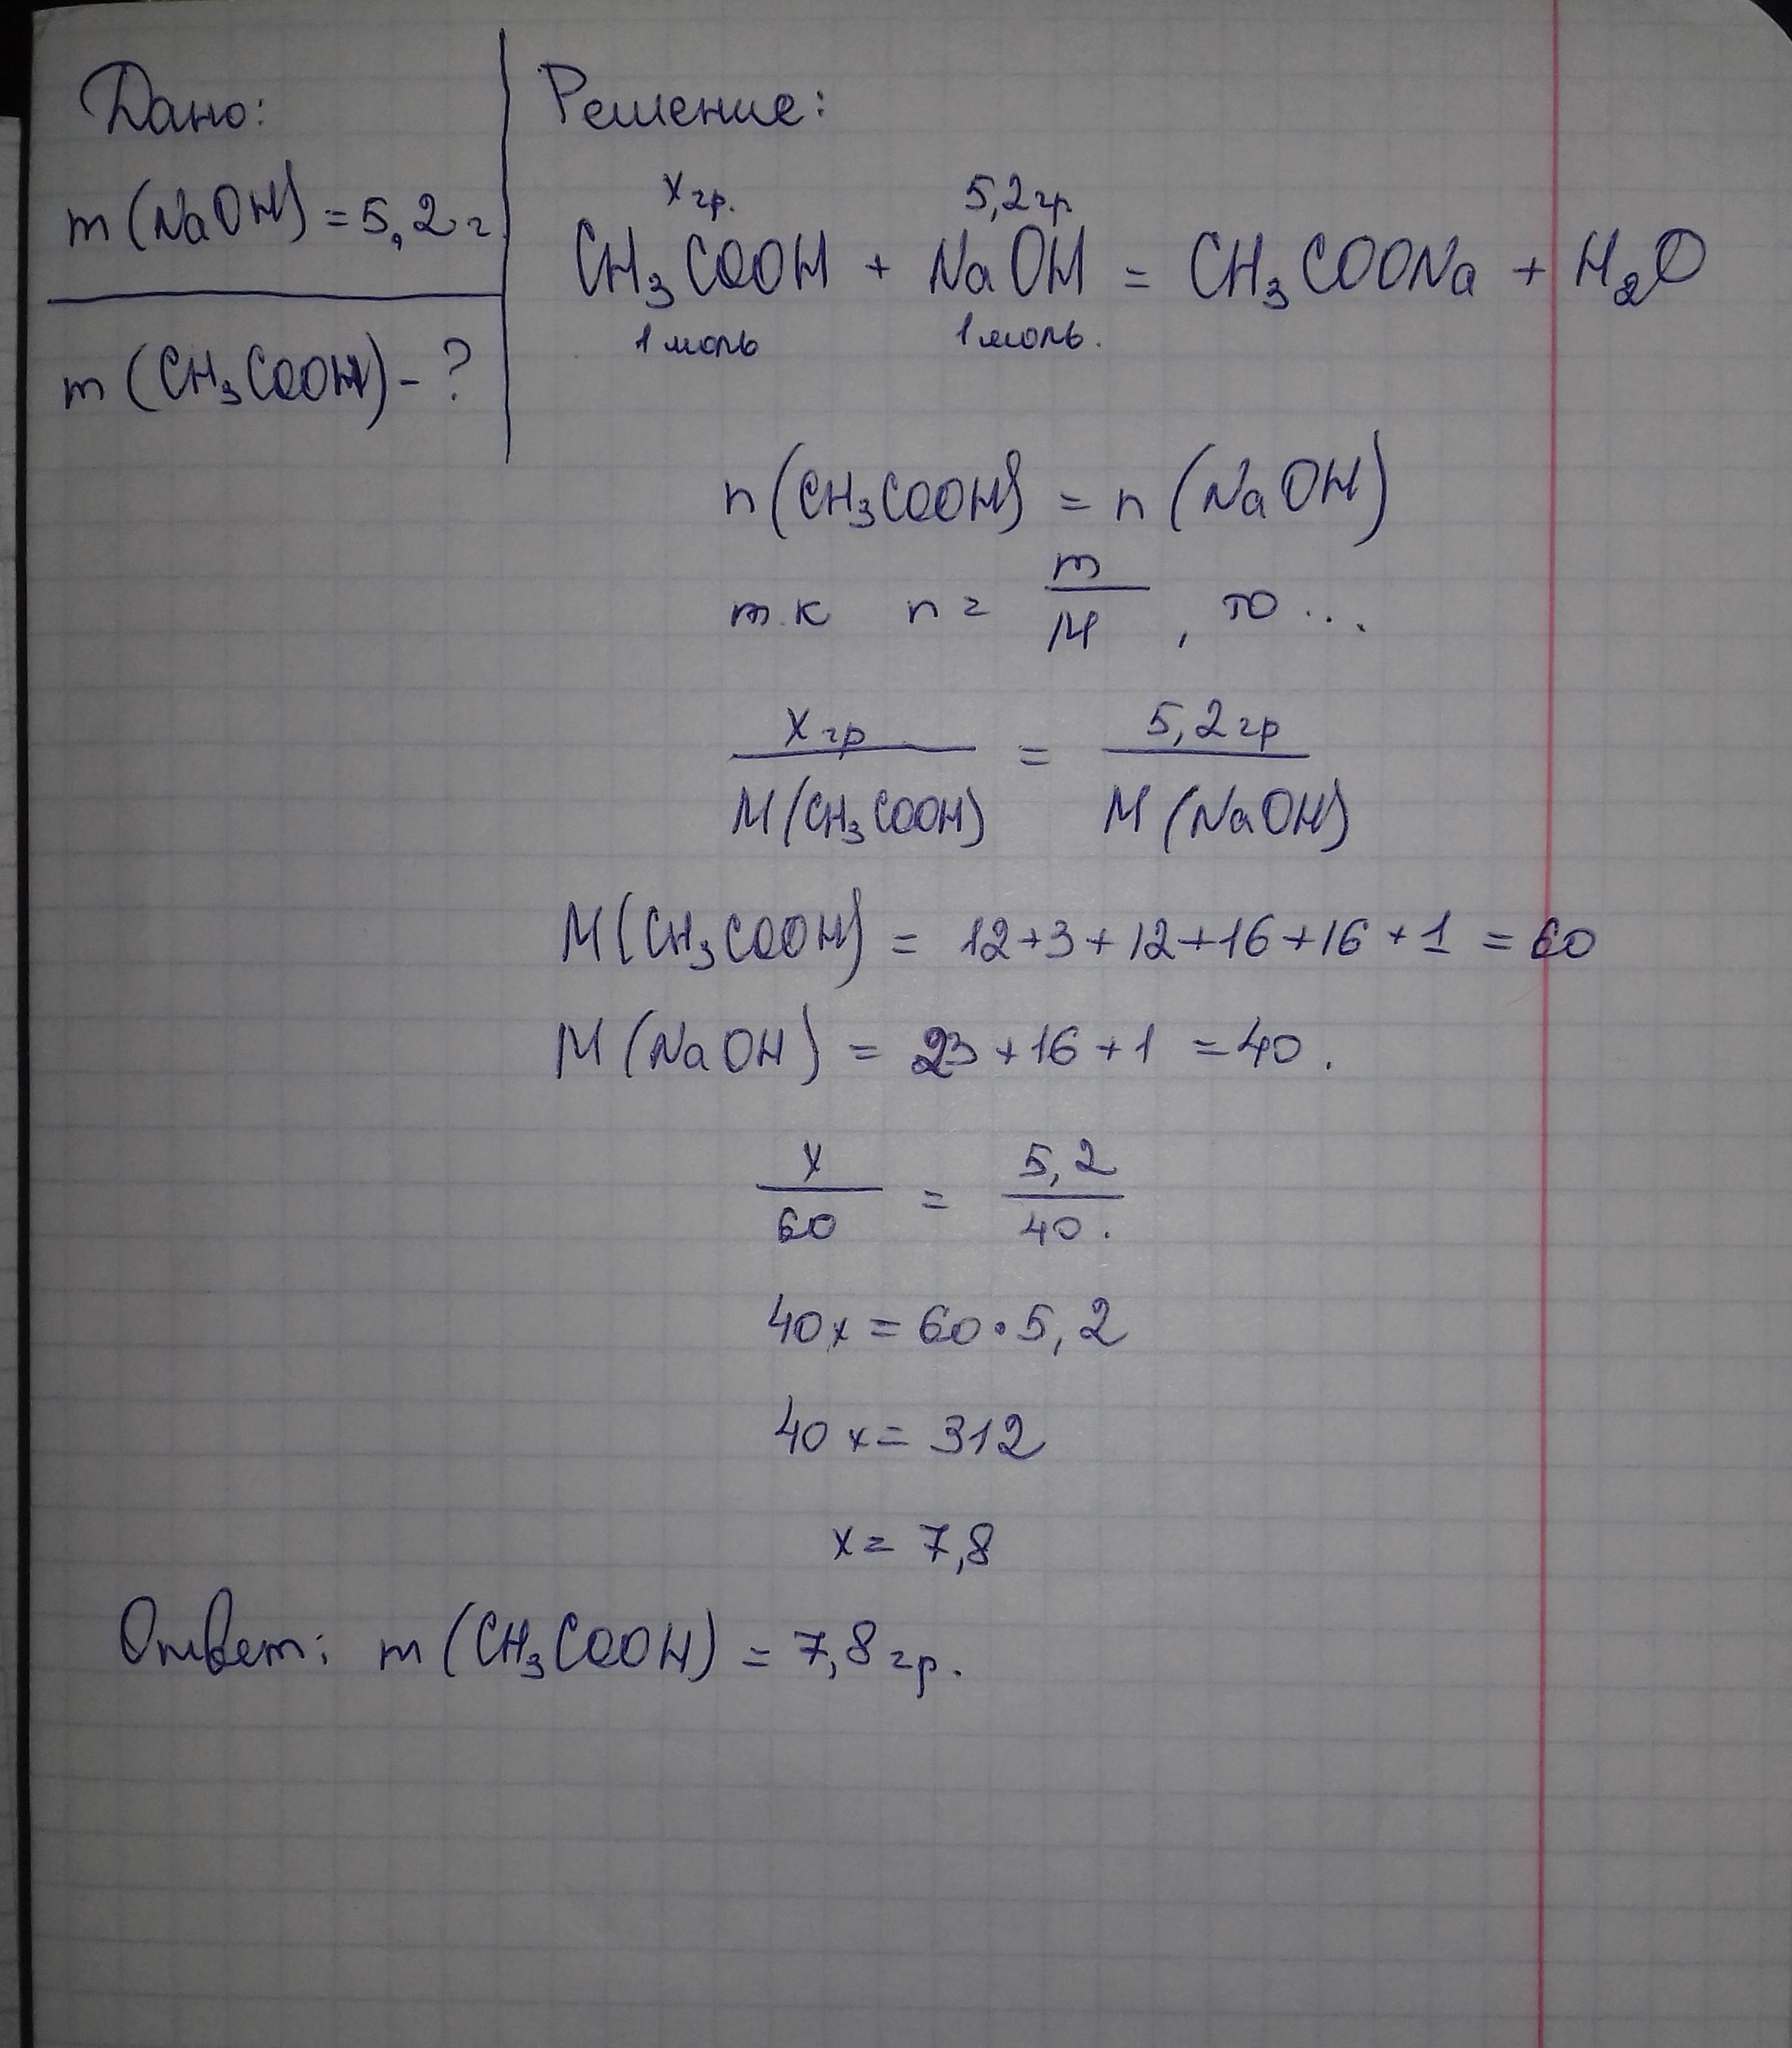 Дано:
m(NaOH)=5,2г
m(CH₃COOH)-?
Решение:
x гр. 5,2 гр
CH₃COOH + NaOH = CH₃COONa + H₂O
1 моль 1 моль.
n(CH₃COOH) = n(NaOH)
т.к n = m/M, то...
x гр/M(CH₃COOH) = 5,2 гр/M(NaOH)
M(CH₃COOH) = 12+3+12+16+16+1 = 60
M(NaOH) = 23+16+1 = 40.
x/60 = 5,2/40.
40x = 60•5,2
40x = 312
x = 7,8
Ответ: m(CH₃COOH) = 7,8 гр.